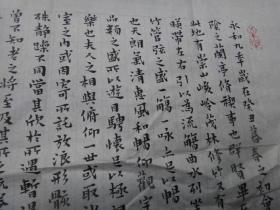 永和九年歲在癸丑暮春之初
陰之蘭亭脩稧事也群賢畢
此地有崇山峻領茂林修竹又有
映帶左右引以為流觴曲水列坐
竹管弦之盛一觴一詠亦足以暢
也天朗氣清惠風和暢仰觀宇
品類之盛所以遊目騁懷足以極
樂也夫人之相與俯仰一世或取
室之內或因寄所託放浪形骸
殊靜躁不同當其欣於所遇暫
曾不知老之將至及其